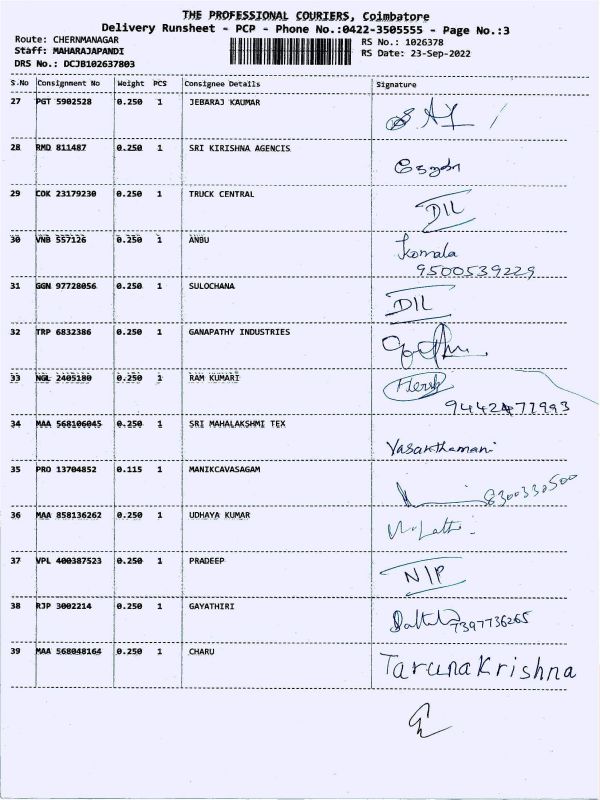 THE PROFESSIONAL COURIERS, Coimbatore
Delivery Runsheet - PCP - Phone No.:0422-3505555 - Page No.:3
Route: CHERNMANAGAR
RS No.: 1026378
Staff: MAHARAJAPANDI
RS Date: 23-Sep-2022
DRS No.: DCJB102637803
S.No Consignment No Weight PCS Consignee Details Signature
27 PGT 5902528 0.250 1 JEBARAJ KAUMAR
28 RMD 811487 0.250 1 SRI KIRISHNA AGENCIS
29 COK 23179230 0.250 1 TRUCK CENTRAL D/L
30 VNB 557126 0.250 1 ANBU Komala
9500539229
31 GGN 97728056 0.250 1 SULOCHANA D/L
32 TRP 6832386 0.250 1 GANAPATHY INDUSTRIES
33 NGL 2405180 0.250 1 RAM KUMARI
34 MAA 568106045 0.250 1 SRI MAHALAKSHMI TEX Vasanthamani
35 PRO 13704852 0.115 1 MANIKCAVASAGAM 8300330500
36 MAA 858136262 0.250 1 UDHAYA KUMAR
37 VPL 400387523 0.250 1 PRADEEP N/P
38 RJP 3002214 0.250 1 GAYATHIRI 7397736265
39 MAA 568048164 0.250 1 CHARU Taruna Krishna